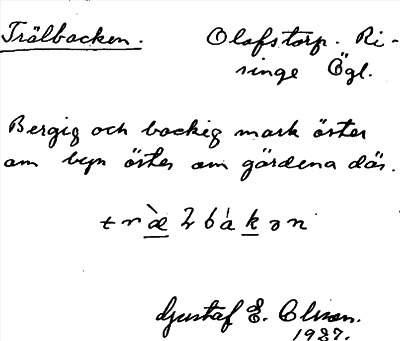 Trälbacken. Olofstorp. Ri-
singe Ögl.
Bergig och backig mark öster
om byn öster om gärdena där.
træ̀lbákən
Gustaf E. Olsson.
1937.